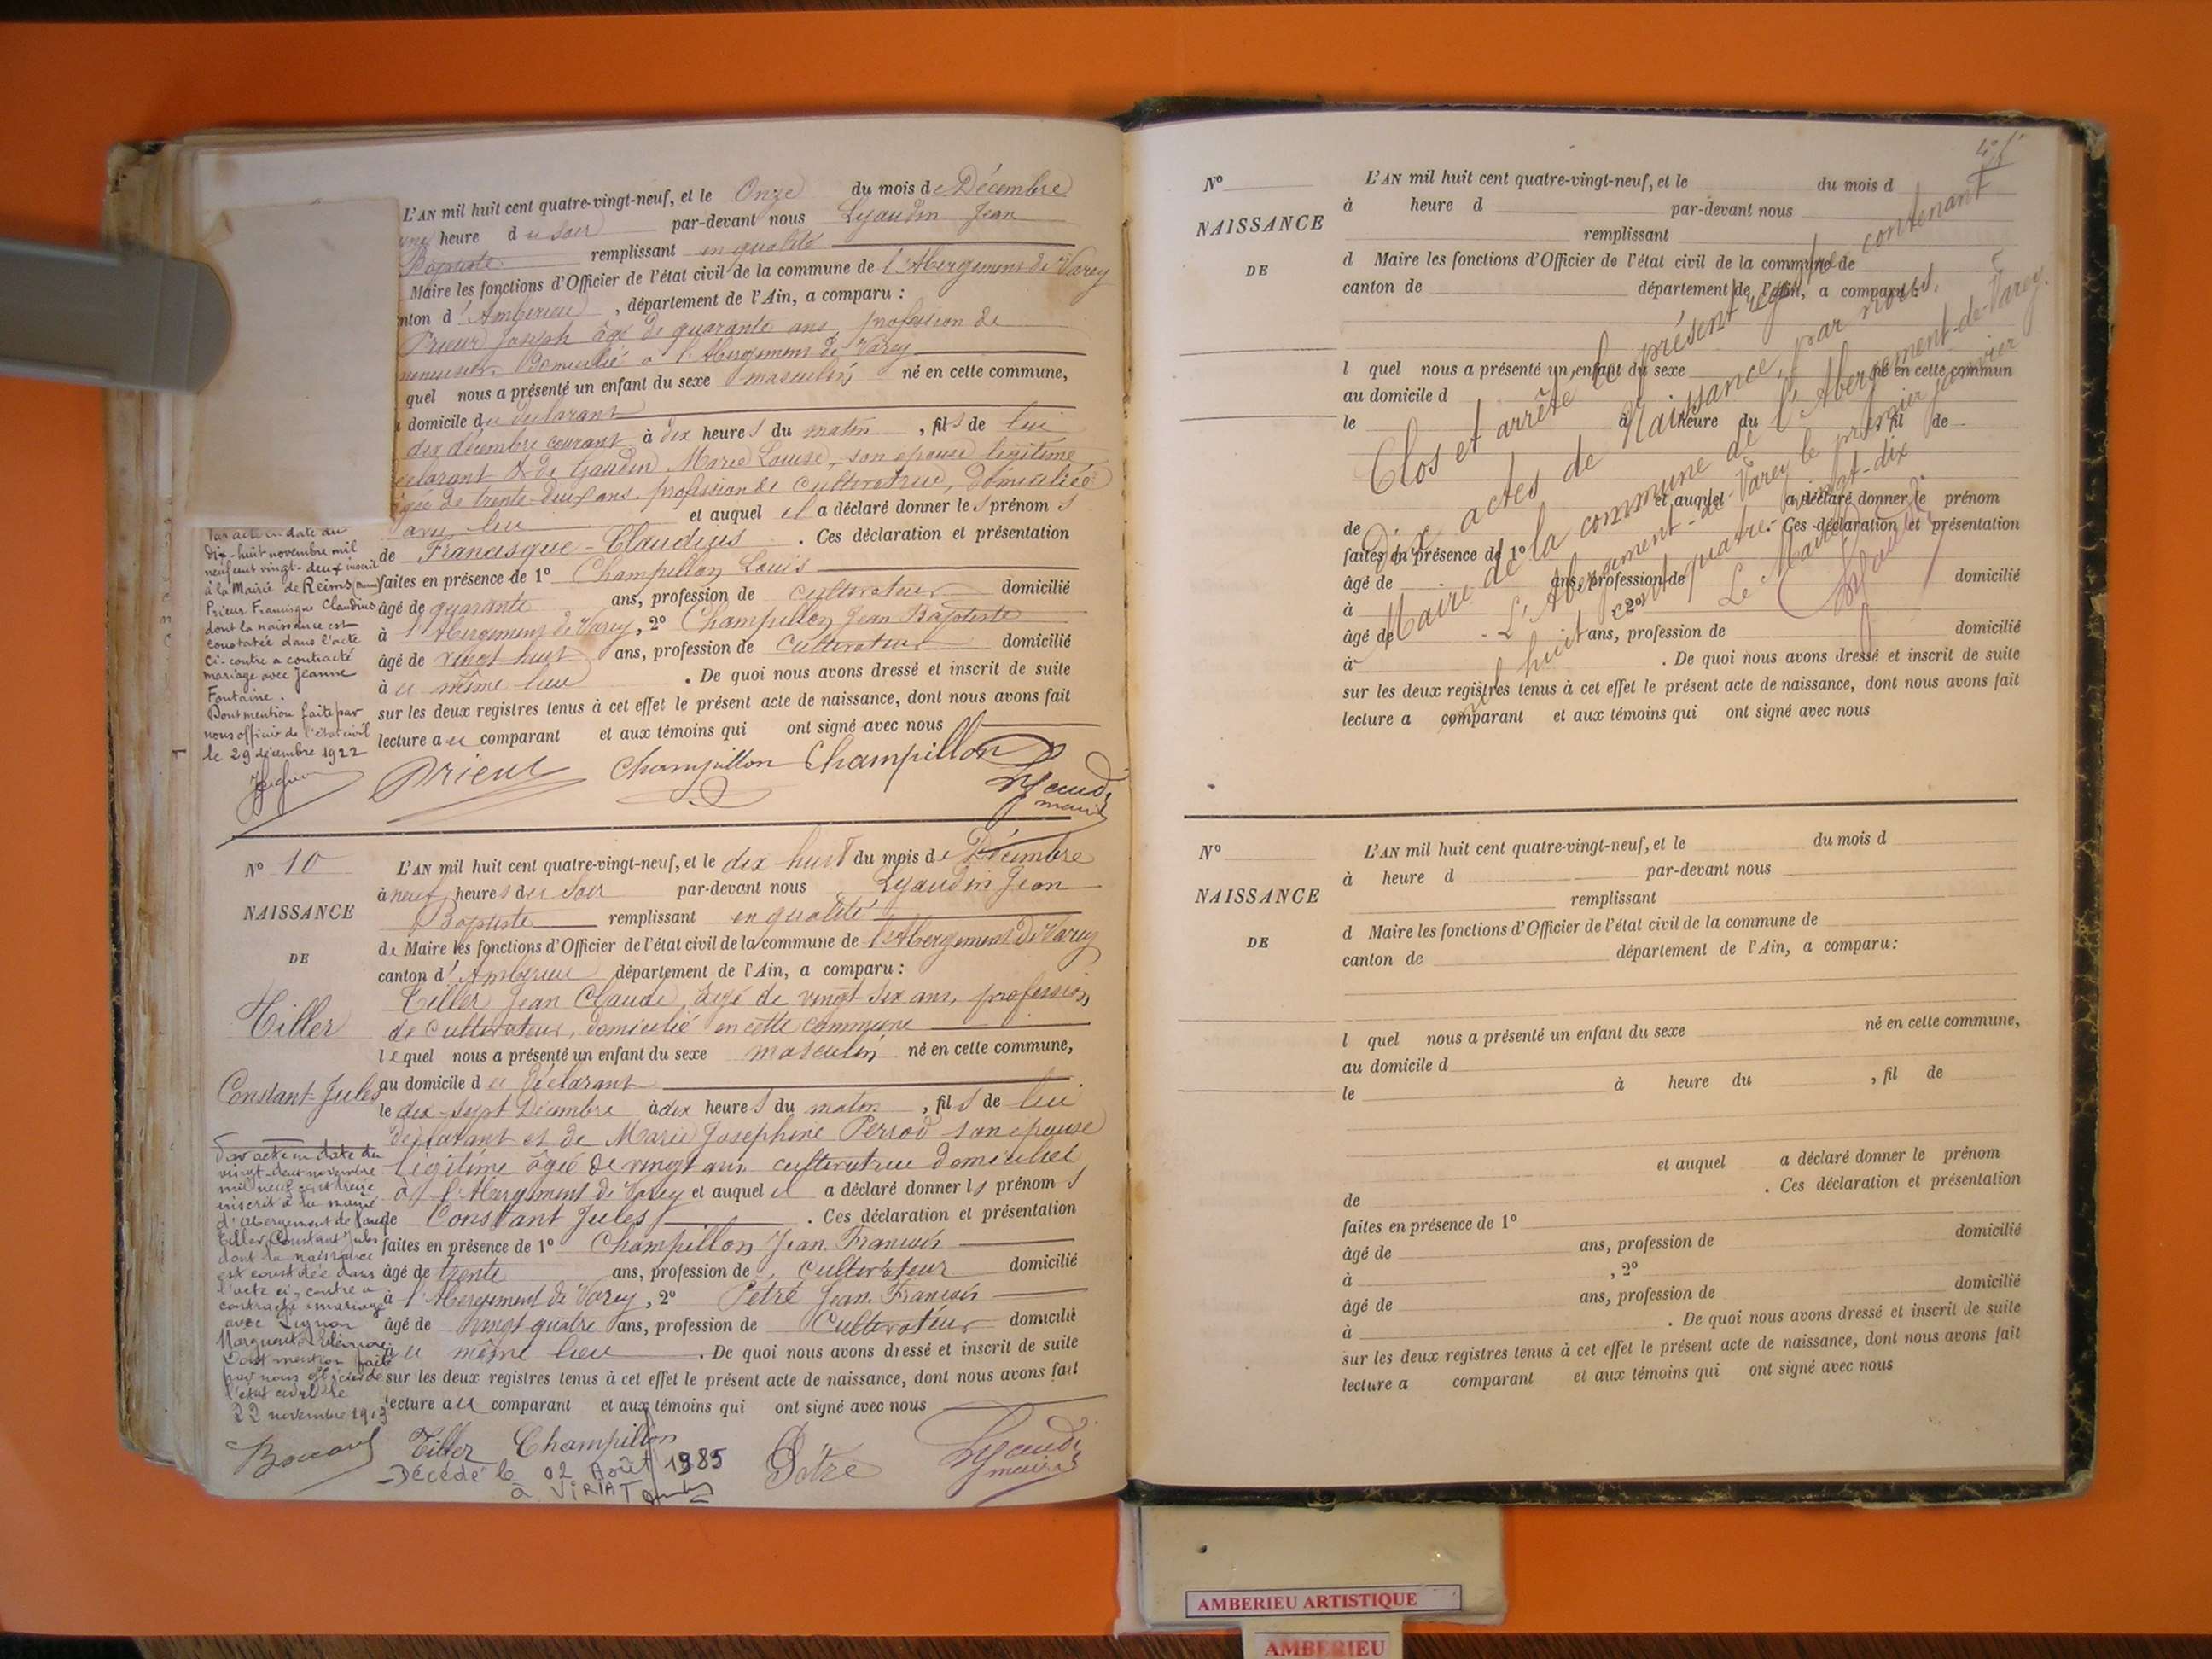 L'AN mil huit cent quatre-vingt-neuf, et le Onze du mois de Décembre
une heure du soir par-devant nous Lyaudin Jean
Baptiste remplissant en qualité
Maire les fonctions d'Officier de l'état civil de la commune de l'Abergement de Varey
nton d'Amberieu, département de l'Ain, a comparu :
Prieur Joseph âgé de quarante ans, profession de
menuisier, Domicilié à l'Abergement de Varey
quel nous a présenté un enfant du sexe masculin né en cette commune,
domicile du declarant
dix décembre courant à dix heures du matin, fils de lui
declarant & de Gaudin Marie Louise, son epouse légitime
âgée de trente-deux ans, profession de cultivatrice, domiciliée
avec lui et auquel il a déclaré donner les prénoms
de Francisque-Claudius. Ces déclaration et présentation
faites en présence de 1º Champillon Louis
âgé de quarante ans, profession de cultivateur domicilié
à l'Abergement de Varey, 2º Champillon Jean Baptiste
âgé de vingt huit ans, profession de Cultivateur domicilié
à u même lieu. De quoi nous avons dressé et inscrit de suite
sur les deux registres tenus à cet effet le présent acte de naissance, dont nous avons fait
lecture au comparant et aux témoins qui ont signé avec nous
Prieur Champillon Champillon Lyaudin
maire
Par acte en date du
dix-huit novembre mil
neuf cent vingt-deux inscrit
à la Mairie de Reims (Marne)
Prieur Francisque Claudius
dont la naissance est
constatée dans l'acte
ci-contre a contracté
mariage avec Jeanne
Fontaine.
Dont mention faite par
nous officier de l'état civil
le 29 décembre 1922
Nº 10
NAISSANCE
DE
Tiller
Constant-Jules
L'AN mil huit cent quatre-vingt-neuf, et le dix huit du mois de Décembre
à neuf heures du soir par-devant nous Lyaudin Jean
Baptiste remplissant en qualité
de Maire les fonctions d'Officier de l'état civil de la commune de l'Abergement de Varey
canton d'Amberieu département de l'Ain, a comparu :
Tiller Jean Claude, âgé de vingt six ans, profession
de cultivateur, domicilié en cette commune
lequel nous a présenté un enfant du sexe masculin né en cette commune,
au domicile du déclarant
le dix-sept Décembre à dix heures du matin, fils de lui
déclarant et de Marie Josephine Perrod son epouse
légitime âgée de vingt ans cultivatrice domiciliée
à l'Abergement de Varey et auquel il a déclaré donner ls prénoms
de Constant Jules. Ces déclaration et présentation
faites en présence de 1º Champillon Jean François
âgé de trente ans, profession de cultivateur domicilié
à l'Abergement de Varey, 2º Pétré Jean François
âgé de vingt quatre ans, profession de Cultivateur domicilié
au même lieu. De quoi nous avons dressé et inscrit de suite
sur les deux registres tenus à cet effet le présent acte de naissance, dont nous avons fait
lecture au comparant et aux témoins qui ont signé avec nous
Tiller Champillon Pétré Lyaudin
maire
Décédé le 02 Août 1985
à VIRIAT
Par acte en date du
vingt-deux novembre
mil neuf cent treize
inscrit à la mairie
d'Abergement de Varey
Tiller Constant Jules
dont la naissance
est constatée dans
l'acte ci-contre a
contracté mariage
avec
Marguerite
Dont mention faite
par nous officier de
l'état civil le
22 novembre 1913
Nº
NAISSANCE
DE
L'AN mil huit cent quatre-vingt-neuf, et le du mois d
à heure d par-devant nous
remplissant
d Maire les fonctions d'Officier de l'état civil de la commune de
canton de département de l'Ain, a comparu :
l quel nous a présenté un enfant du sexe né en cette commun
au domicile d
le à heure du fil de
et auquel a déclaré donner le prénom
de . Ces déclaration et présentation
faites en présence de 1º
âgé de ans, profession de domicilié
à 2º
âgé de ans, profession de domicilié
à . De quoi nous avons dressé et inscrit de suite
sur les deux registres tenus à cet effet le présent acte de naissance, dont nous avons fait
lecture a comparant et aux témoins qui ont signé avec nous
Clos et arrêté le présent registre contenant
Dix actes de Naissance, par nous,
Maire de la commune de l'Abergement-de-Varey.
L'Abergement-de-Varey le premier janvier
mil huit cent quatre-vingt-dix
Le Maire
Nº
NAISSANCE
DE
L'AN mil huit cent quatre-vingt-neuf, et le du mois d
à heure d par-devant nous
remplissant
d Maire les fonctions d'Officier de l'état civil de la commune de
canton de département de l'Ain, a comparu :
l quel nous a présenté un enfant du sexe né en cette commune,
au domicile d
le à heure du , fil de
et auquel a déclaré donner le prénom
de . Ces déclaration et présentation
faites en présence de 1º
âgé de ans, profession de domicilié
à , 2º
âgé de ans, profession de domicilié
à . De quoi nous avons dressé et inscrit de suite
sur les deux registres tenus à cet effet le présent acte de naissance, dont nous avons fait
lecture a comparant et aux témoins qui ont signé avec nous
AMBERIEU ARTISTIQUE
AMBERIEU